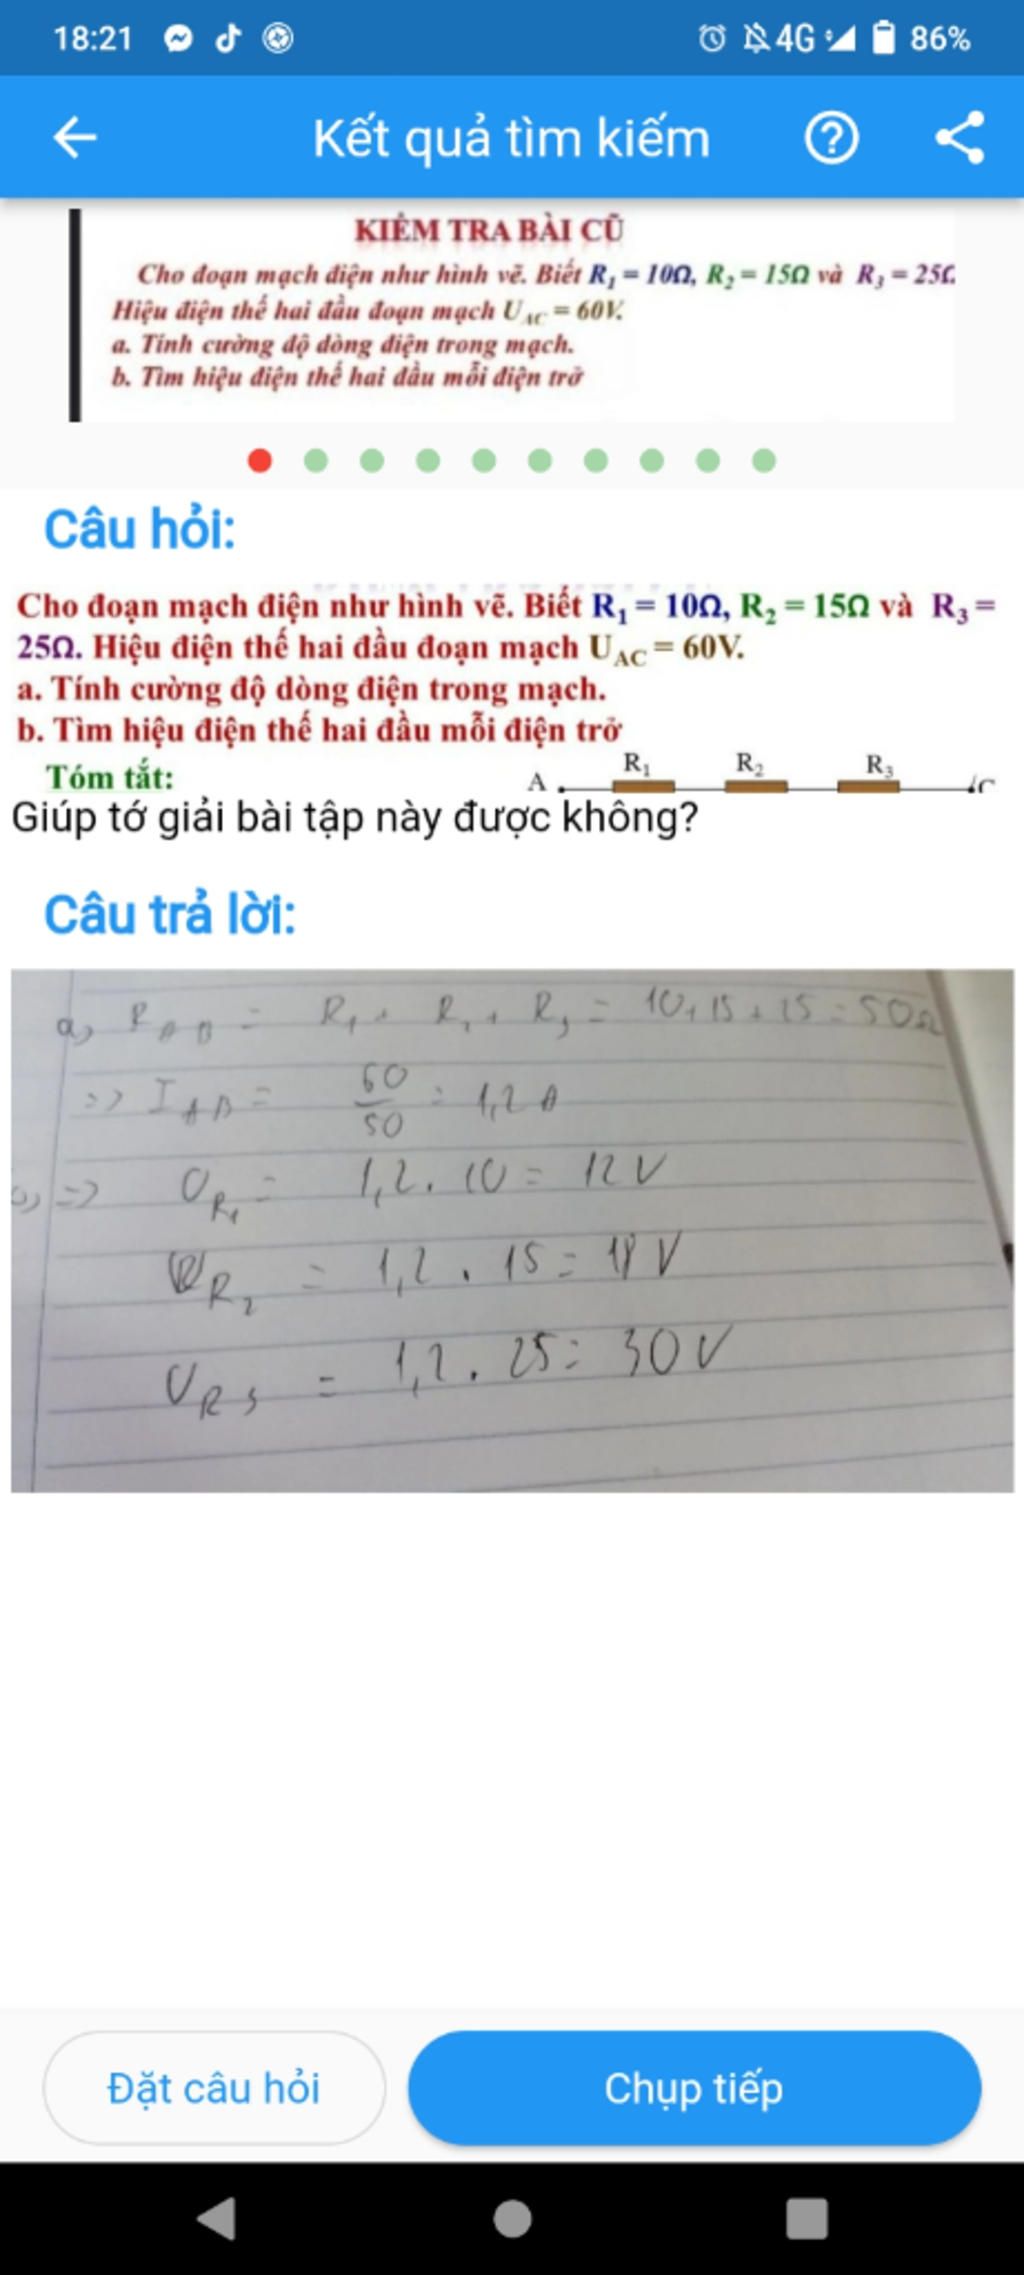 18:21 4G 86%
Kết quả tìm kiếm
KIỂM TRA BÀI CŨ
Cho đoạn mạch điện như hình vẽ. Biết R₁ = 10Ω, R₂ = 15Ω và R₃ = 25Ω
Hiệu điện thế hai đầu đoạn mạch U_AC = 60V.
a. Tính cường độ dòng điện trong mạch.
b. Tìm hiệu điện thế hai đầu mỗi điện trở
Câu hỏi:
Cho đoạn mạch điện như hình vẽ. Biết R₁ = 10Ω, R₂ = 15Ω và R₃ =
25Ω. Hiệu điện thế hai đầu đoạn mạch U_AC = 60V.
a. Tính cường độ dòng điện trong mạch.
b. Tìm hiệu điện thế hai đầu mỗi điện trở
Tóm tắt: A R₁ R₂ R₃ C
Giúp tớ giải bài tập này được không?
Câu trả lời:
a) R_AB = R₁ + R₂ + R₃ = 10+15+25 = 50Ω
=> I_AB = 60/50 = 1,2 A
b) => U_R₁ = 1,2 . 10 = 12 V
U_R₂ = 1,2 . 15 = 18 V
U_R₃ = 1,2 . 25 = 30 V
Đặt câu hỏi
Chụp tiếp